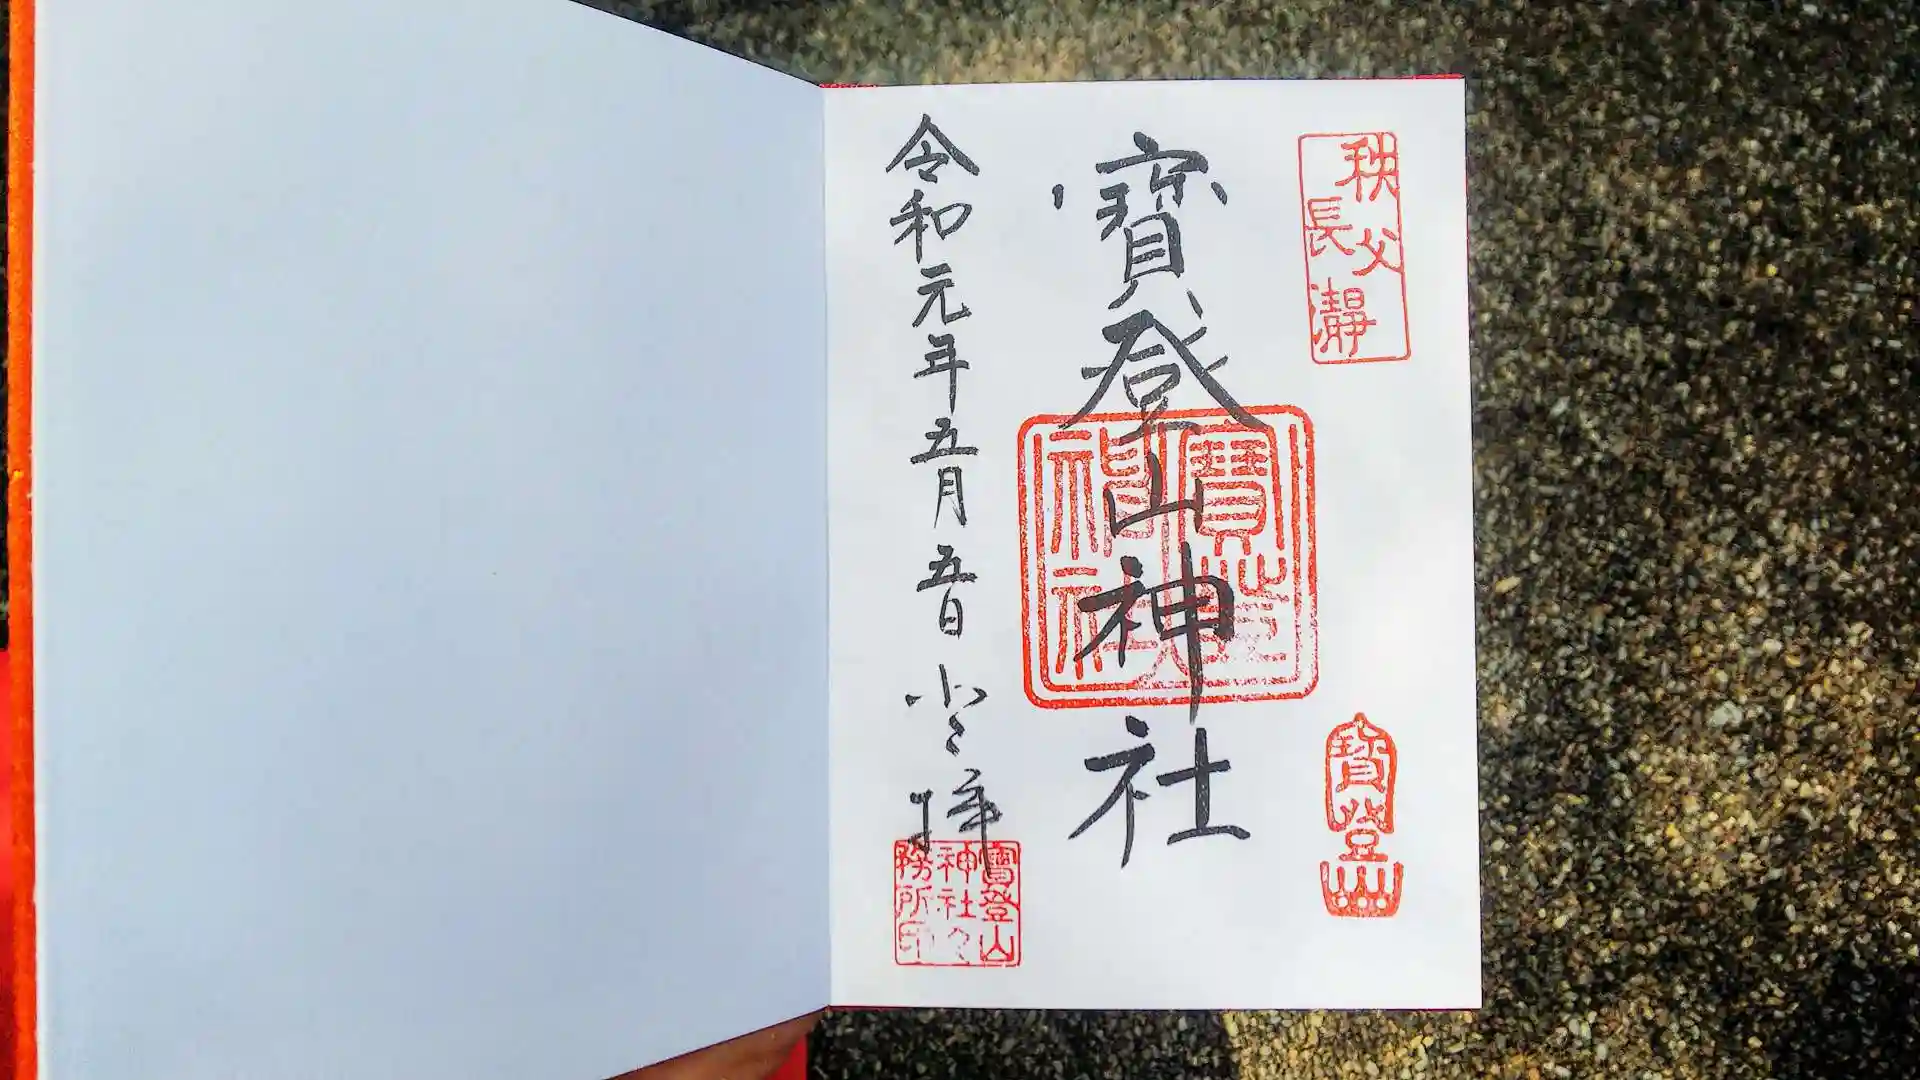 秩父
長瀞
寳登山
寳登山神社
寳登山神社
令和元年五月五日
登拝
寳登山
神社々
務所印